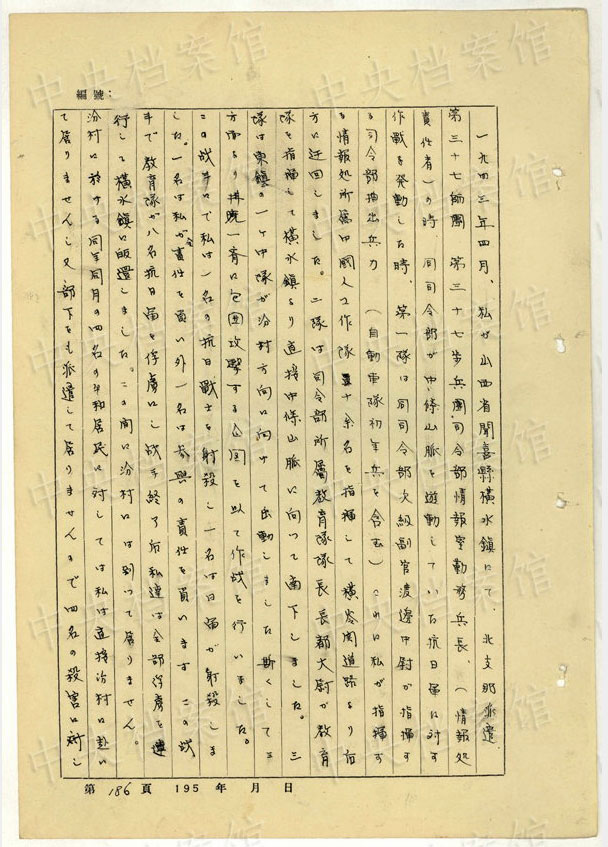 編號：
一九四三年四月、私ガ山西省聞喜縣橫水鎮にて、北支那派遣
第三十七師團 第三十七歩兵團司令部情報室勤務兵長、（情報処
責任者）の時、同司令部が中條山脈を遊動していた抗日軍に対す
作戦を発動した時、第一隊は同司令部次級副官渡邊中尉が指揮す
る司令部抽出兵力 （自動車隊初年兵を含む）これに私が指揮す
る情報処所属中國人工作隊 十余名を指揮して橫岺関道路より右
方に迂回しました。二隊は司令部所屬教育隊隊長長郡大尉が教育
隊を指揮して橫水鎮より直接中條山脈に向って南下しました。三
隊は東鎮の一ケ中隊が汾村方向に向けて出動しました 斯くして三
方面より拂暁一斉に包囲攻撃する企図を以て作战を行いました。
この战斗で私は一名の抗日戰士を射殺し一名は日軍が射殺しま
した。一名は私が全責任を負い外一名は参與の責任を負います この战
斗で教育隊が八名抗日軍を俘虜にし战斗終了后私達は全部俘虜を連
行して橫水鎮に皈還しました。この間に汾村には到って居りません。
汾村に於ける同年同月の四名の平和居民に対しては私は直接汾村に赴い
て居りませんし又、部下をも派遣して居りませんので四名の殺害に対し
第 186 頁 195 年 月 日
中央档案馆